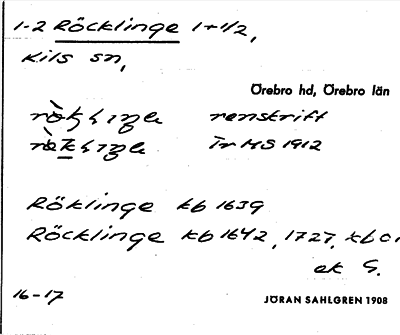 1-2 Röcklinge 1+1/2,
Kils sn,
Örebro hd, Örebro län
renskrift
ïr HS 1912
Röklinge kb 1639
Röcklinge kb 1642, 1727, kb
ek G.
16-17
JÖRAN SAHLGREN 1908